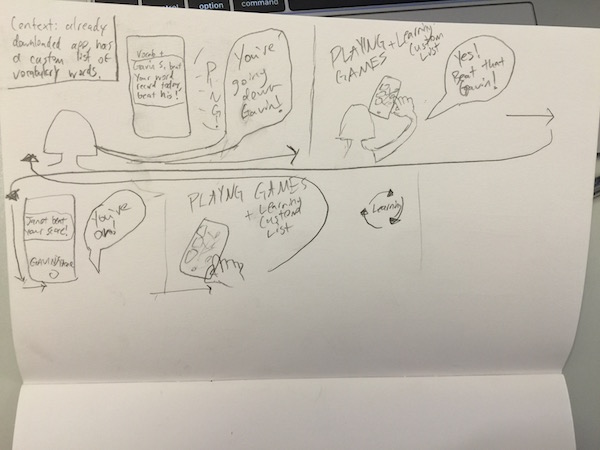 option
command
Context: already
downloaded app, has
a custom list of
vocabulary words.
Vocab +
Gavin S. beat
your word
record today,
beat his!
PING!
You're
going
down
Gavin!
PLAYING + Learning
GAMES Custom
List
Yes!
Beat that
Gavin!
beat
your score!
GAVIN
You're
on!
PLAYNG GAMES
+ Learning
Custom
List
Learning